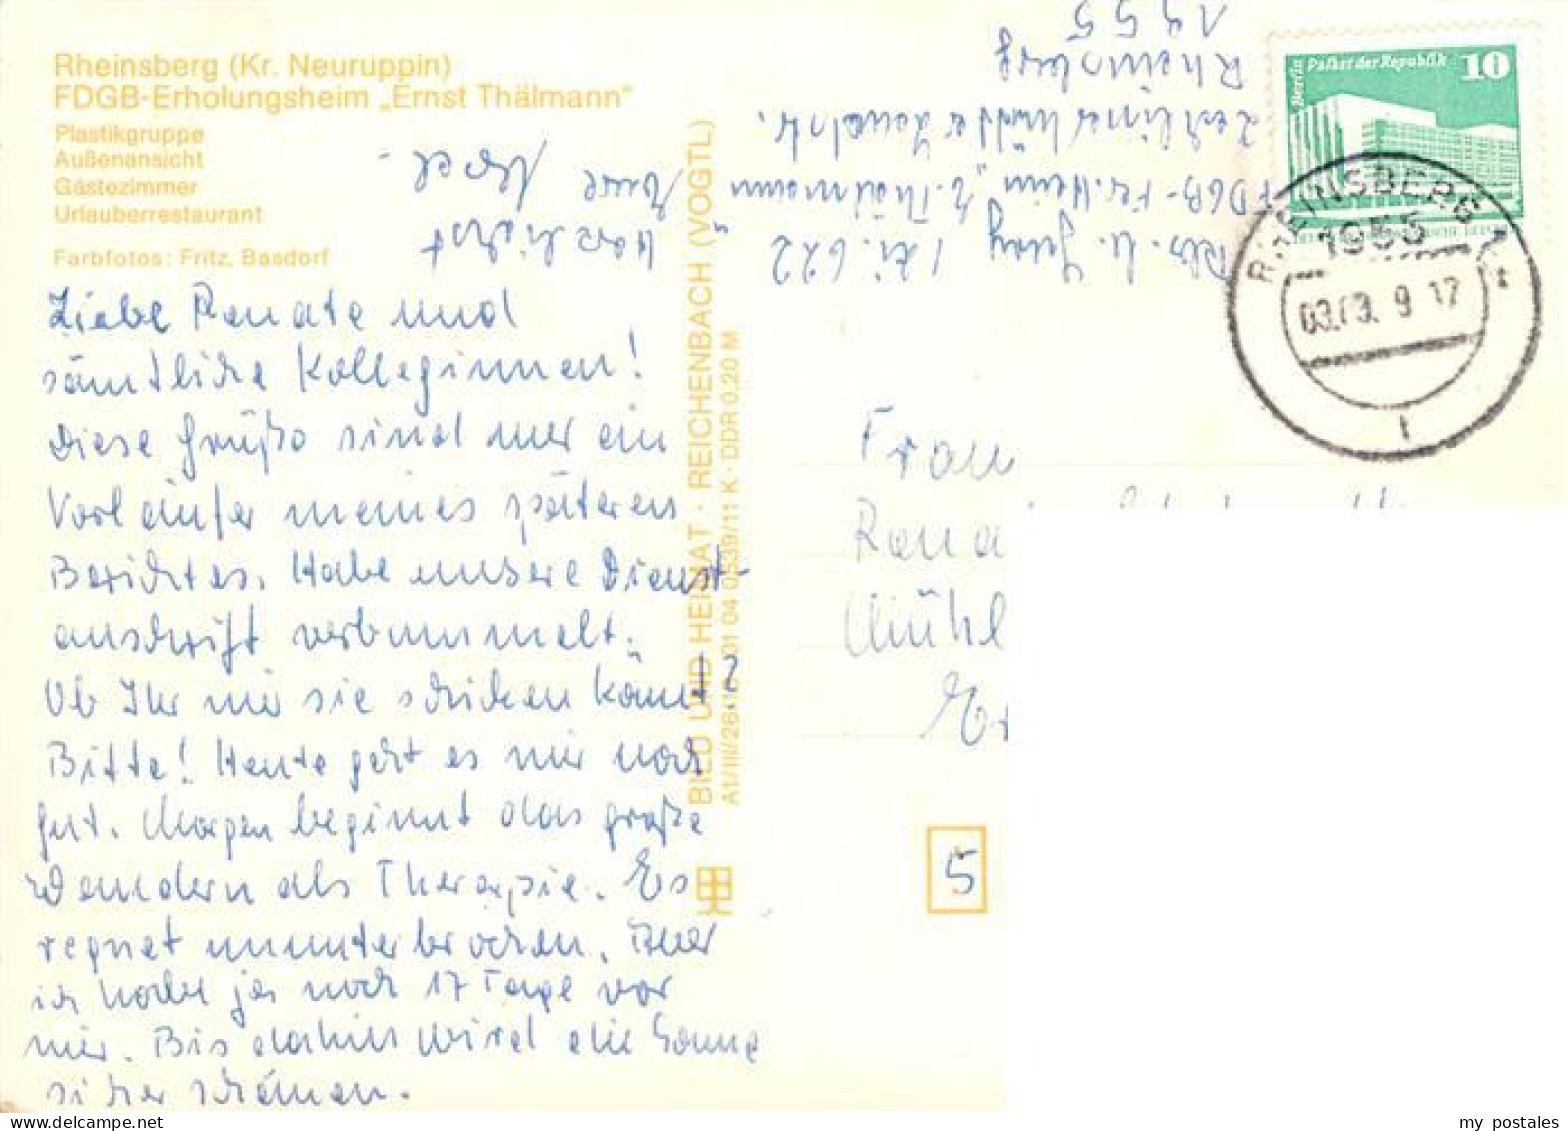 Rheinsberg (Kr. Neuruppin)
FDGB-Erholungsheim „Ernst Thälmann"
Plastikgruppe
Außenansicht
Gästezimmer
Urlauberrestaurant
Farbfotos: Fritz, Basdorf
Liebe Renate und
sämtliche Kolleginnen!
Diese Grüße sind nur ein
Vorläufer meines späteren
Berichtes. Habe unsere Dienst-
anschrift verbummelt.
Ob Ihr mir sie schicken könnt?
Bitte! Heute geht es mir noch
gut. Morgen beginnt das große
Wandern als Therapie. Es
regnet ununterbrochen. Aber
ich habe ja noch 17 Tage vor
mir. Bis dahin wird die Sonne
sicher scheinen.
Herzlichst
Eure
BILD UND HEIMAT · REICHENBACH (VOGTL)
A1/III/26-13 01 04 0539/11 K · DDR 0,20 M
Zi. 622
FDGB-Er.Heim „E. Thälmann"
Zechliner Hütter Landstr.
Rheinsberg
1955
Berlin Palast der Republik 10
RHEINSBERG
1955
03.09. 9 17
1
Frau
Rena
Mühl
Er
5
my postales